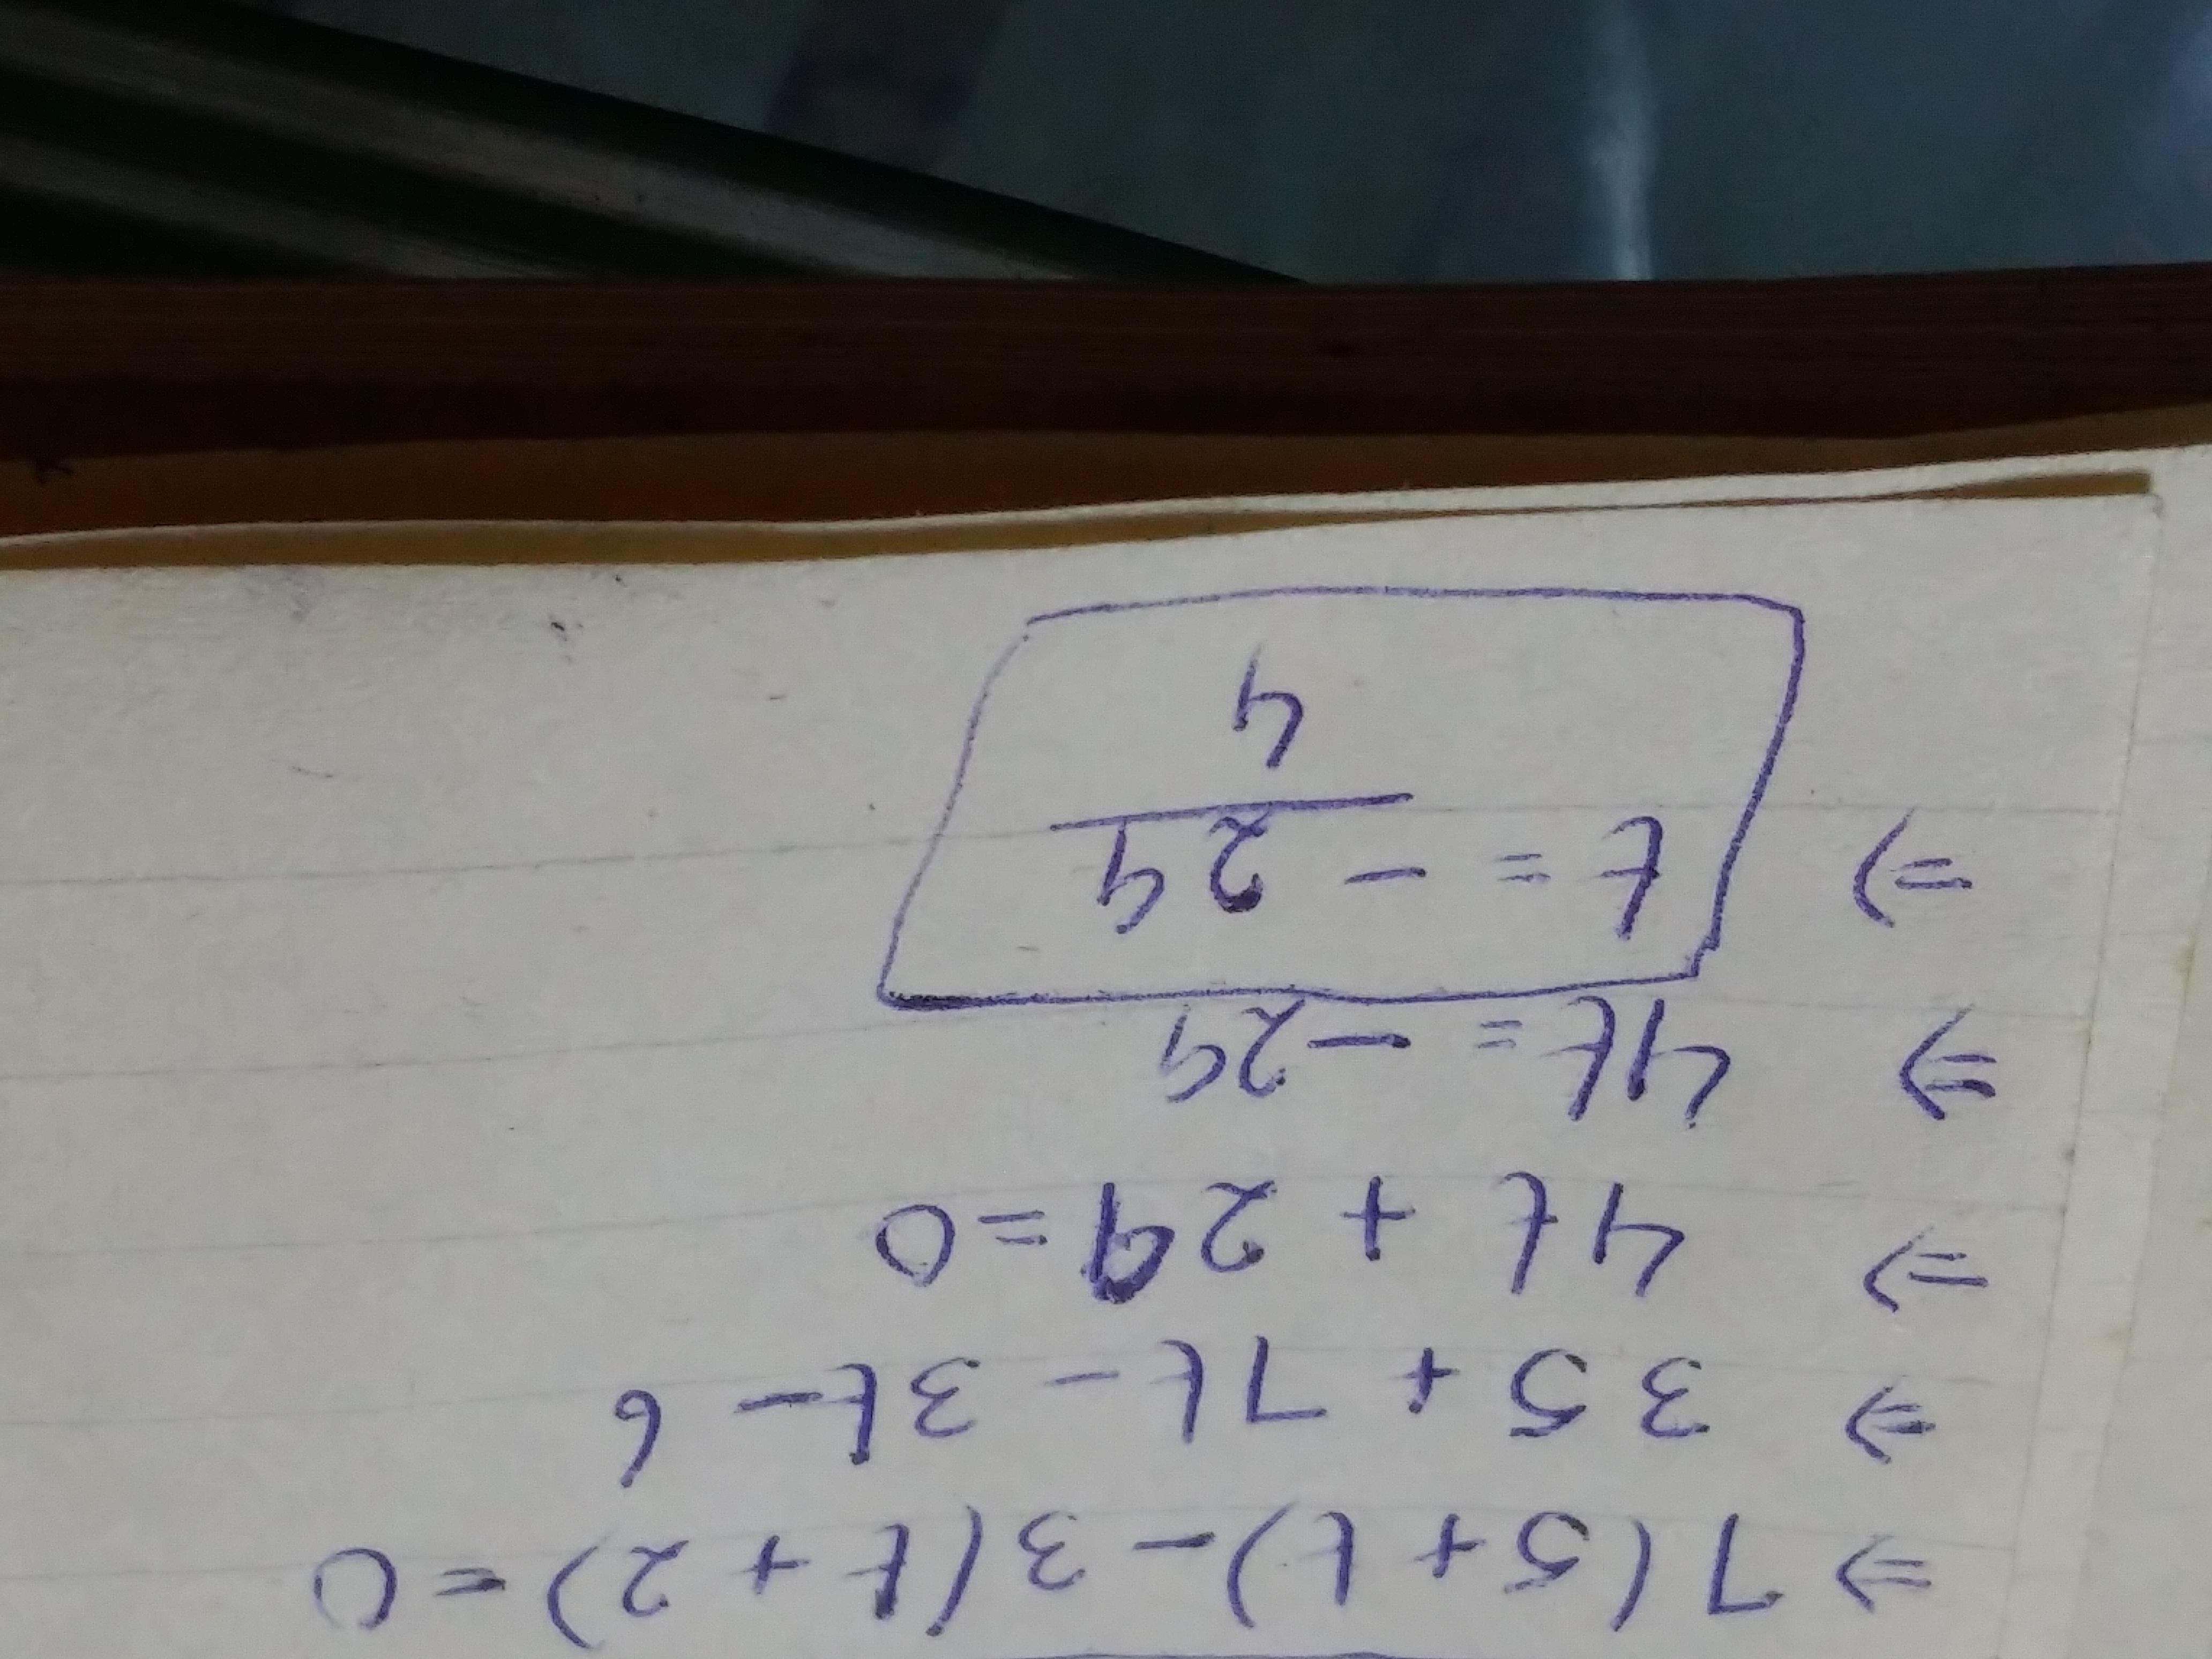 ⇒ 7(5+t)-3(t+2)=0
⇒ 35+7t-3t-6
⇒ 4t+29=0
⇒ 4t=-29
⇒ t=-29
4